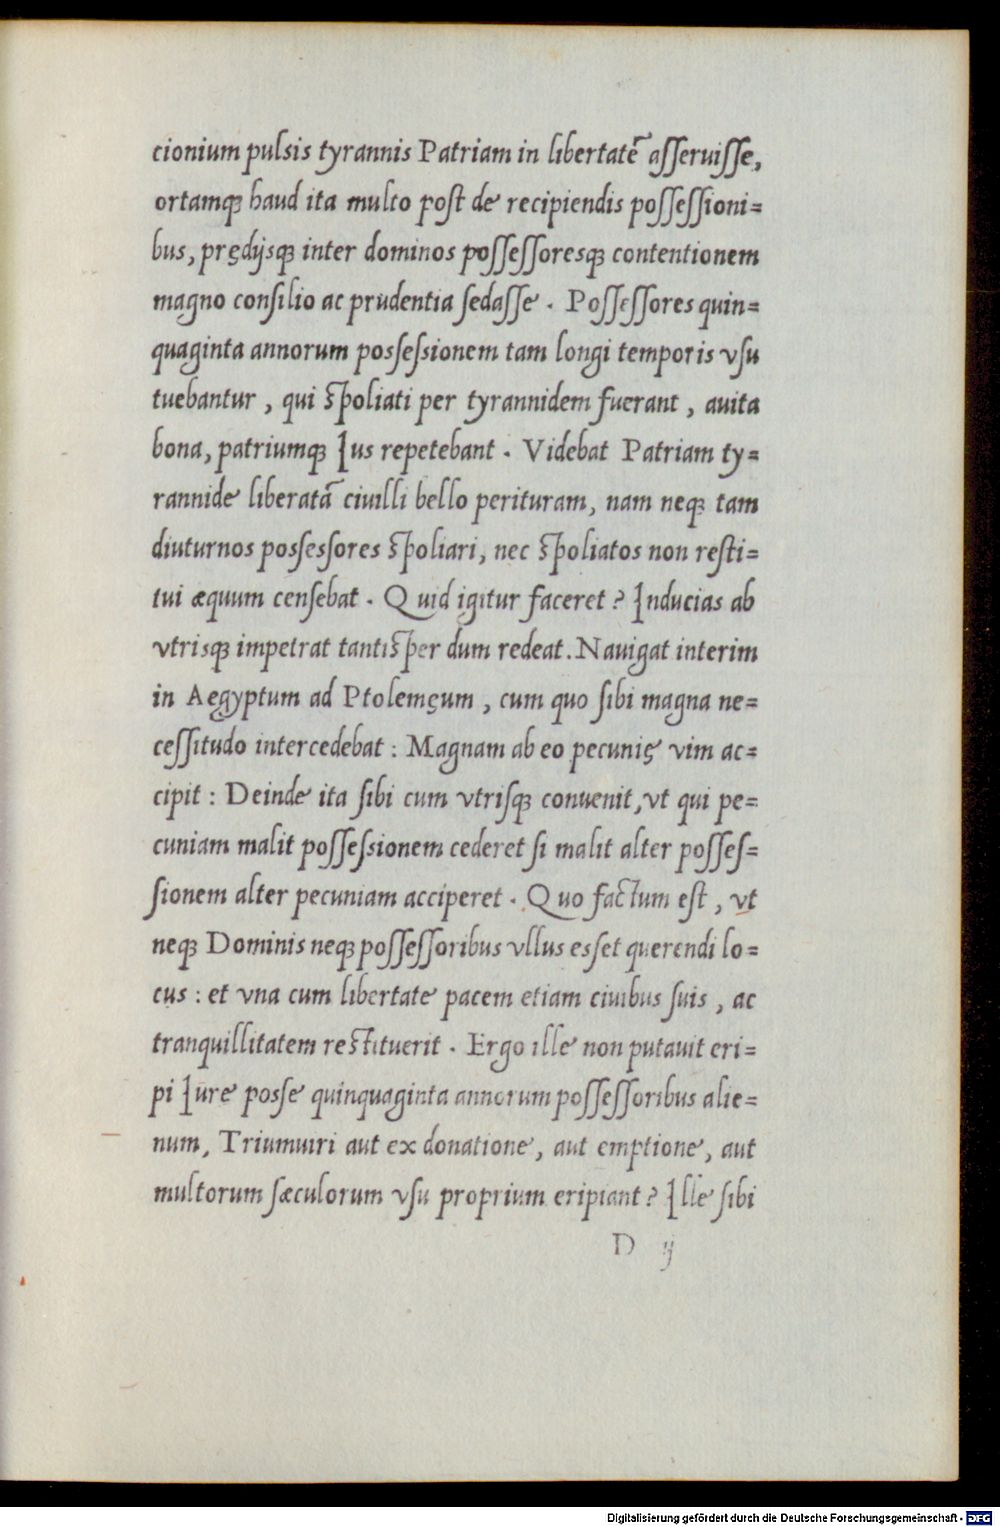 cionium pulsis tyrannis Patriam in libertatē aſſeruiſſe,
ortamqꝫ haud ita multo poſt de recipiendis poſſeſſioni=
bus, prędijsqꝫ inter dominos poſſeſſoresqꝫ contentionem
magno conſilio ac prudentia ſedaſſe . Poſſeſſores quin=
quaginta annorum posſeſsionem tam longi temporis vſu
tuebantur , qui ſpoliati per tyrannidem fuerant , auita
bona, patriumqꝫ Ius repetebant . Videbat Patriam ty=
rannide liberatā ciuilli bello perituram, nam neqꝫ tam
diuturnos posſesſores ſpoliari, nec ſpoliatos non reſti=
tui æquum cenſebat . Quid igitur faceret ? Inducias ab
vtrisqꝫ impetrat tantiſper dum redeat. Nauigat interim
in Aegyptum ad Ptolemęum , cum quo ſibi magna ne=
ceſſitudo intercedebat : Magnam ab eo pecunię vim ac=
cipit : Deinde ita ſibi cum vtriſqꝫ conuenit, vt qui pe=
cuniam malit poſſeſsionem cederet ſi malit alter poſſeſ=
ſionem alter pecuniam acciperet . Quo factum eſt , vt
neqꝫ Dominis neqꝫ poſſeſſoribus vllus esſet querendi lo=
cus : et vna cum libertate pacem etiam ciuibus ſuis , ac
tranquillitatem reſtituerit . Ergo ille non putauit eri=
pi Iure posſe quinquaginta annorum poſſeſſoribus alie=
num, Triumuiri aut ex donatione, aut emptione, aut
multorum ſæculorum vſu proprium eripiant ? Ille ſibi
D ij
Digitalisierung gefördert durch die Deutsche Forschungsgemeinschaft - DFG